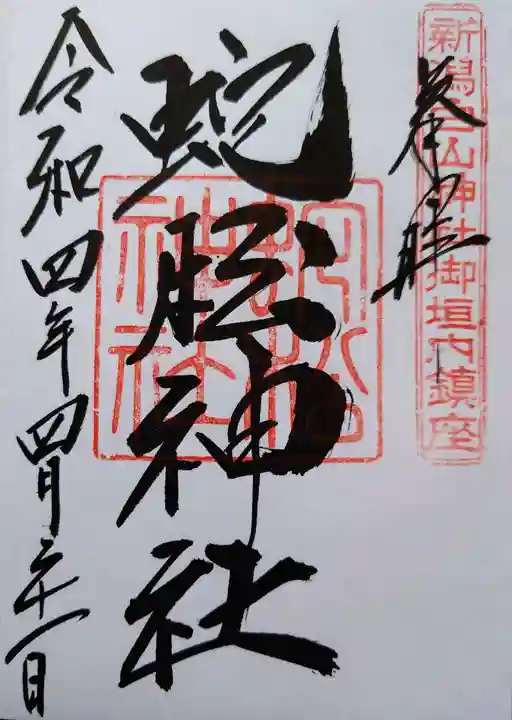 新潟白山神社御垣内鎮座
奉拝
蛇松神社
蛇松神社
令和四年四月二十一日